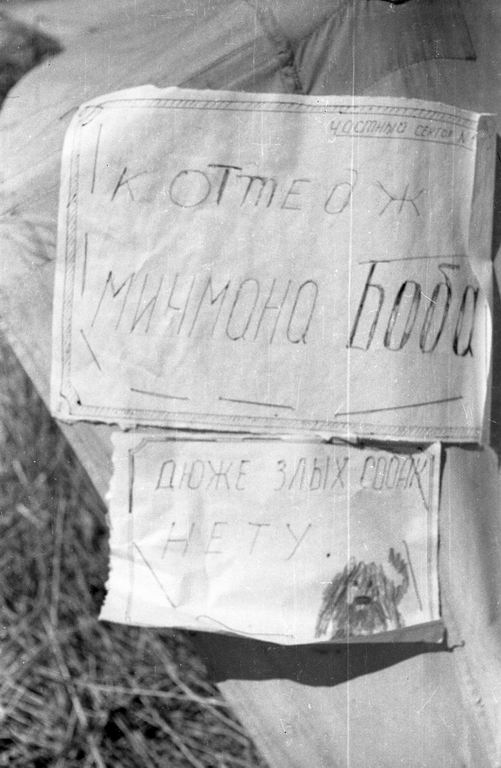 частный сектор №1
коттедж
мичмана Боба
дюже злых собак
нету